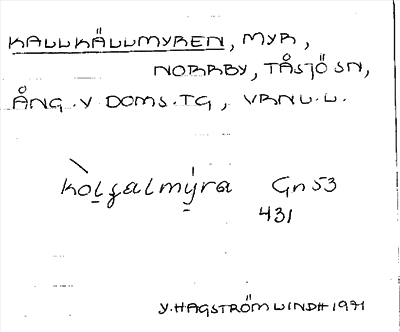 KALLKÄLLMYREN, MYR,
NORRBY, TÅSJÖ SN,
ÅNG.V DOMS.TG, VRNL.L.
kòl̲ɟalmý̲ra Gn 53
431
Y.HAGSTRÖM LINDH 1971